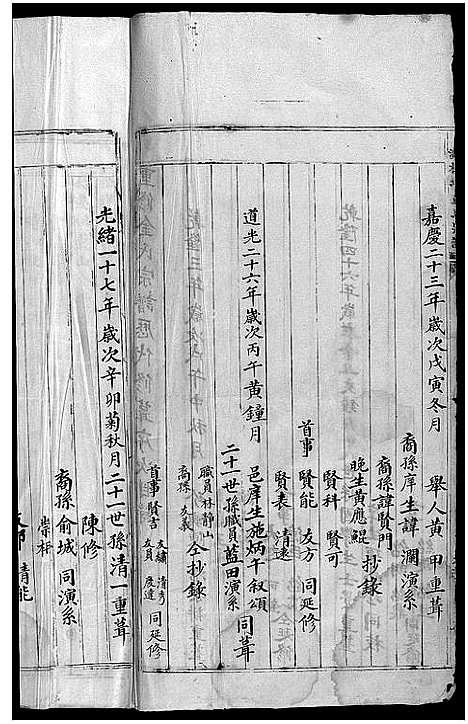 嘉慶二十三年歲次戊寅冬月
舉人黃 甲重葺
裔孫庠生諱 瀾演系
裔孫諱賢門
晚生黃應鯤 抄錄
賢科 賢可
首事 賢能 友方 同延修
賢表 清遠
道光二十六年歲次丙午黃鐘月
邑庠生施炳午叙頌
二十一世孫職員藍田演系 同葺
職員林靜山
裔孫 友義 仝抄錄
首事 賢吉 友繡 清彥
友員 展達 同延修
光緒一十七年歲次辛卯菊秋月二十一世孫清一重葺
陳修
裔孫 俞城 同演系
崇和
清能